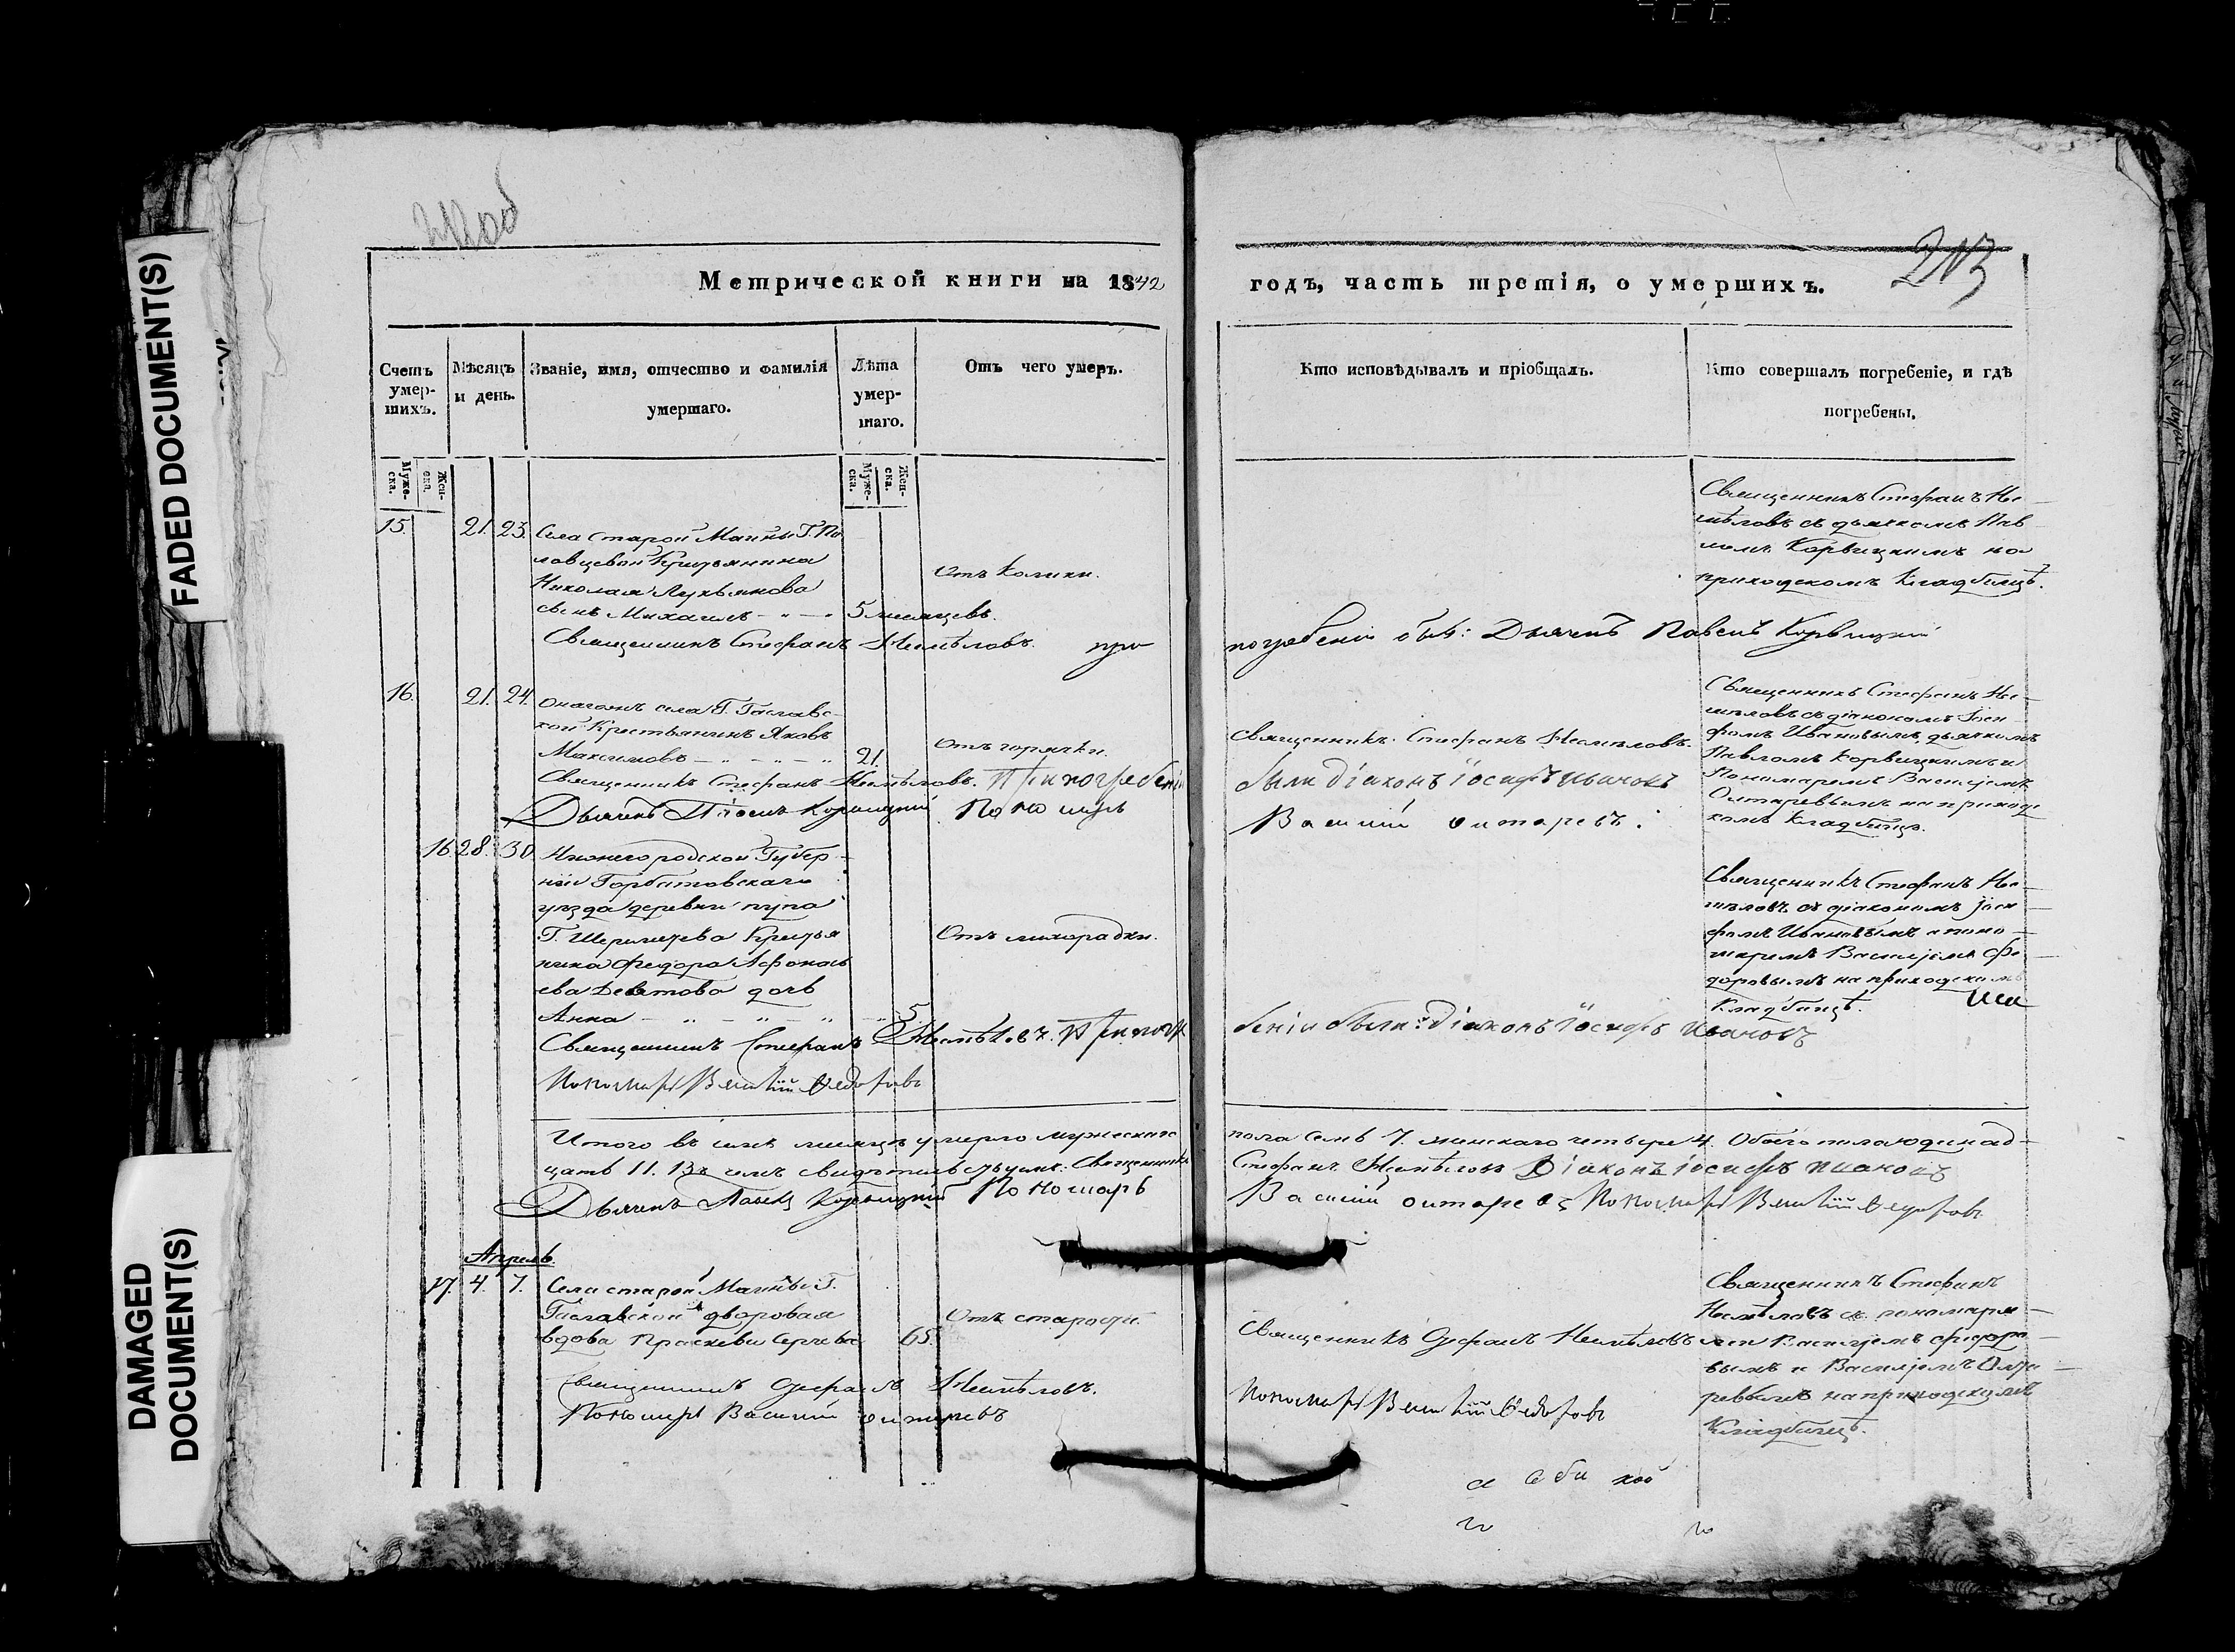 FADED DOCUMENT(S)
DAMAGED DOCUMENT(S)
213
Метрической книги на 1842 годъ, часть третія, о умершихъ.
Счетъ умер-шихъ.
Мѣсяцъ и день.
Званіе, имя, отчество и фамилія умершаго.
Лѣта умер-шаго.
Отъ чего умеръ.
Кто исповѣдывалъ и пріобщалъ.
Кто совершалъ погребеніе, и гдѣ погребены.
Муже-ска.
Жен-ска.
Муже-ска.
Жен-ска.
15. 21. 23. Села Старой Майны Г. По
ловцевой Крестьянина
Николая Лукьянова
сынъ Михаилъ 5 месяцевъ.
Отъ колики.
Священникъ Стефанъ Не-
мѣловъ съ дьячкомъ Пав
ломъ Корвицкимъ на
приходскомъ кладбищѣ.
Священникъ Стефанъ Немѣловъ. при погребеніи былъ: Дьячекъ Павелъ Корвицкій
16. 21. 24. Онагожъ села Г.
кой Крестьянинъ Яковъ
Максимовъ 21.
Отъ горячки.
Священникъ Стефанъ Немѣловъ.
Священникъ Стефанъ Не-
мѣловъ съ діакономъ Іоси
фомъ Ивановымъ, дьячкомъ
Павломъ Корвицкимъ и
Пономаремъ Василіемъ
на приход
комъ кладбищѣ.
Священникъ Стефанъ Немѣловъ. При погребеніи были діаконъ Іосифъ Ивановъ
Дьячекъ Павелъ Корвицкій Пономарь Василій
16. 28. 30. Нижегородской Губер-
ніи Горбатовскаго
уѣзда деревни
Г. Шереметева Крестья
нина Федора Афонась
ева дочь
Анна 5.
Отъ лихорадки.
Священникъ Стефанъ Не-
мѣловъ съ діакономъ Іоси
фомъ Ивановымъ и поно-
маремъ Василіемъ Фе
доровымъ на приходскомъ
Кладбищѣ.
Священникъ Стефанъ Немѣловъ. При погребеніи были: діаконъ Іосифъ Ивановъ
Пономарь Василій Ѳедоровъ
Итого въ семъ месяцѣ умерло мужескаго пола семь 7. женскаго четыре 4. Обоего пола одинад-
цать 11. Въ чемъ свидѣтельствуемъ: Священникъ Стефанъ Немѣловъ Діаконъ Іосифъ Ивановъ
Дьячекъ Павелъ Корвицкій Пономарь Василій Пономарь Василій Ѳедоровъ
Апрель
17. 4. 7. Села старой Майны Г.
дворовая
вдова 65.
Отъ старости.
Священникъ Стефанъ Немѣловъ
Священникъ Стефанъ
Немѣловъ съ пономаря-
ми Василіемъ Федоро-
вымъ и Василіемъ
на приходскомъ
Кладбищѣ.
Священникъ Стефанъ Немѣловъ.
Пономарь Василій Ѳедоровъ
Пономарь Василій